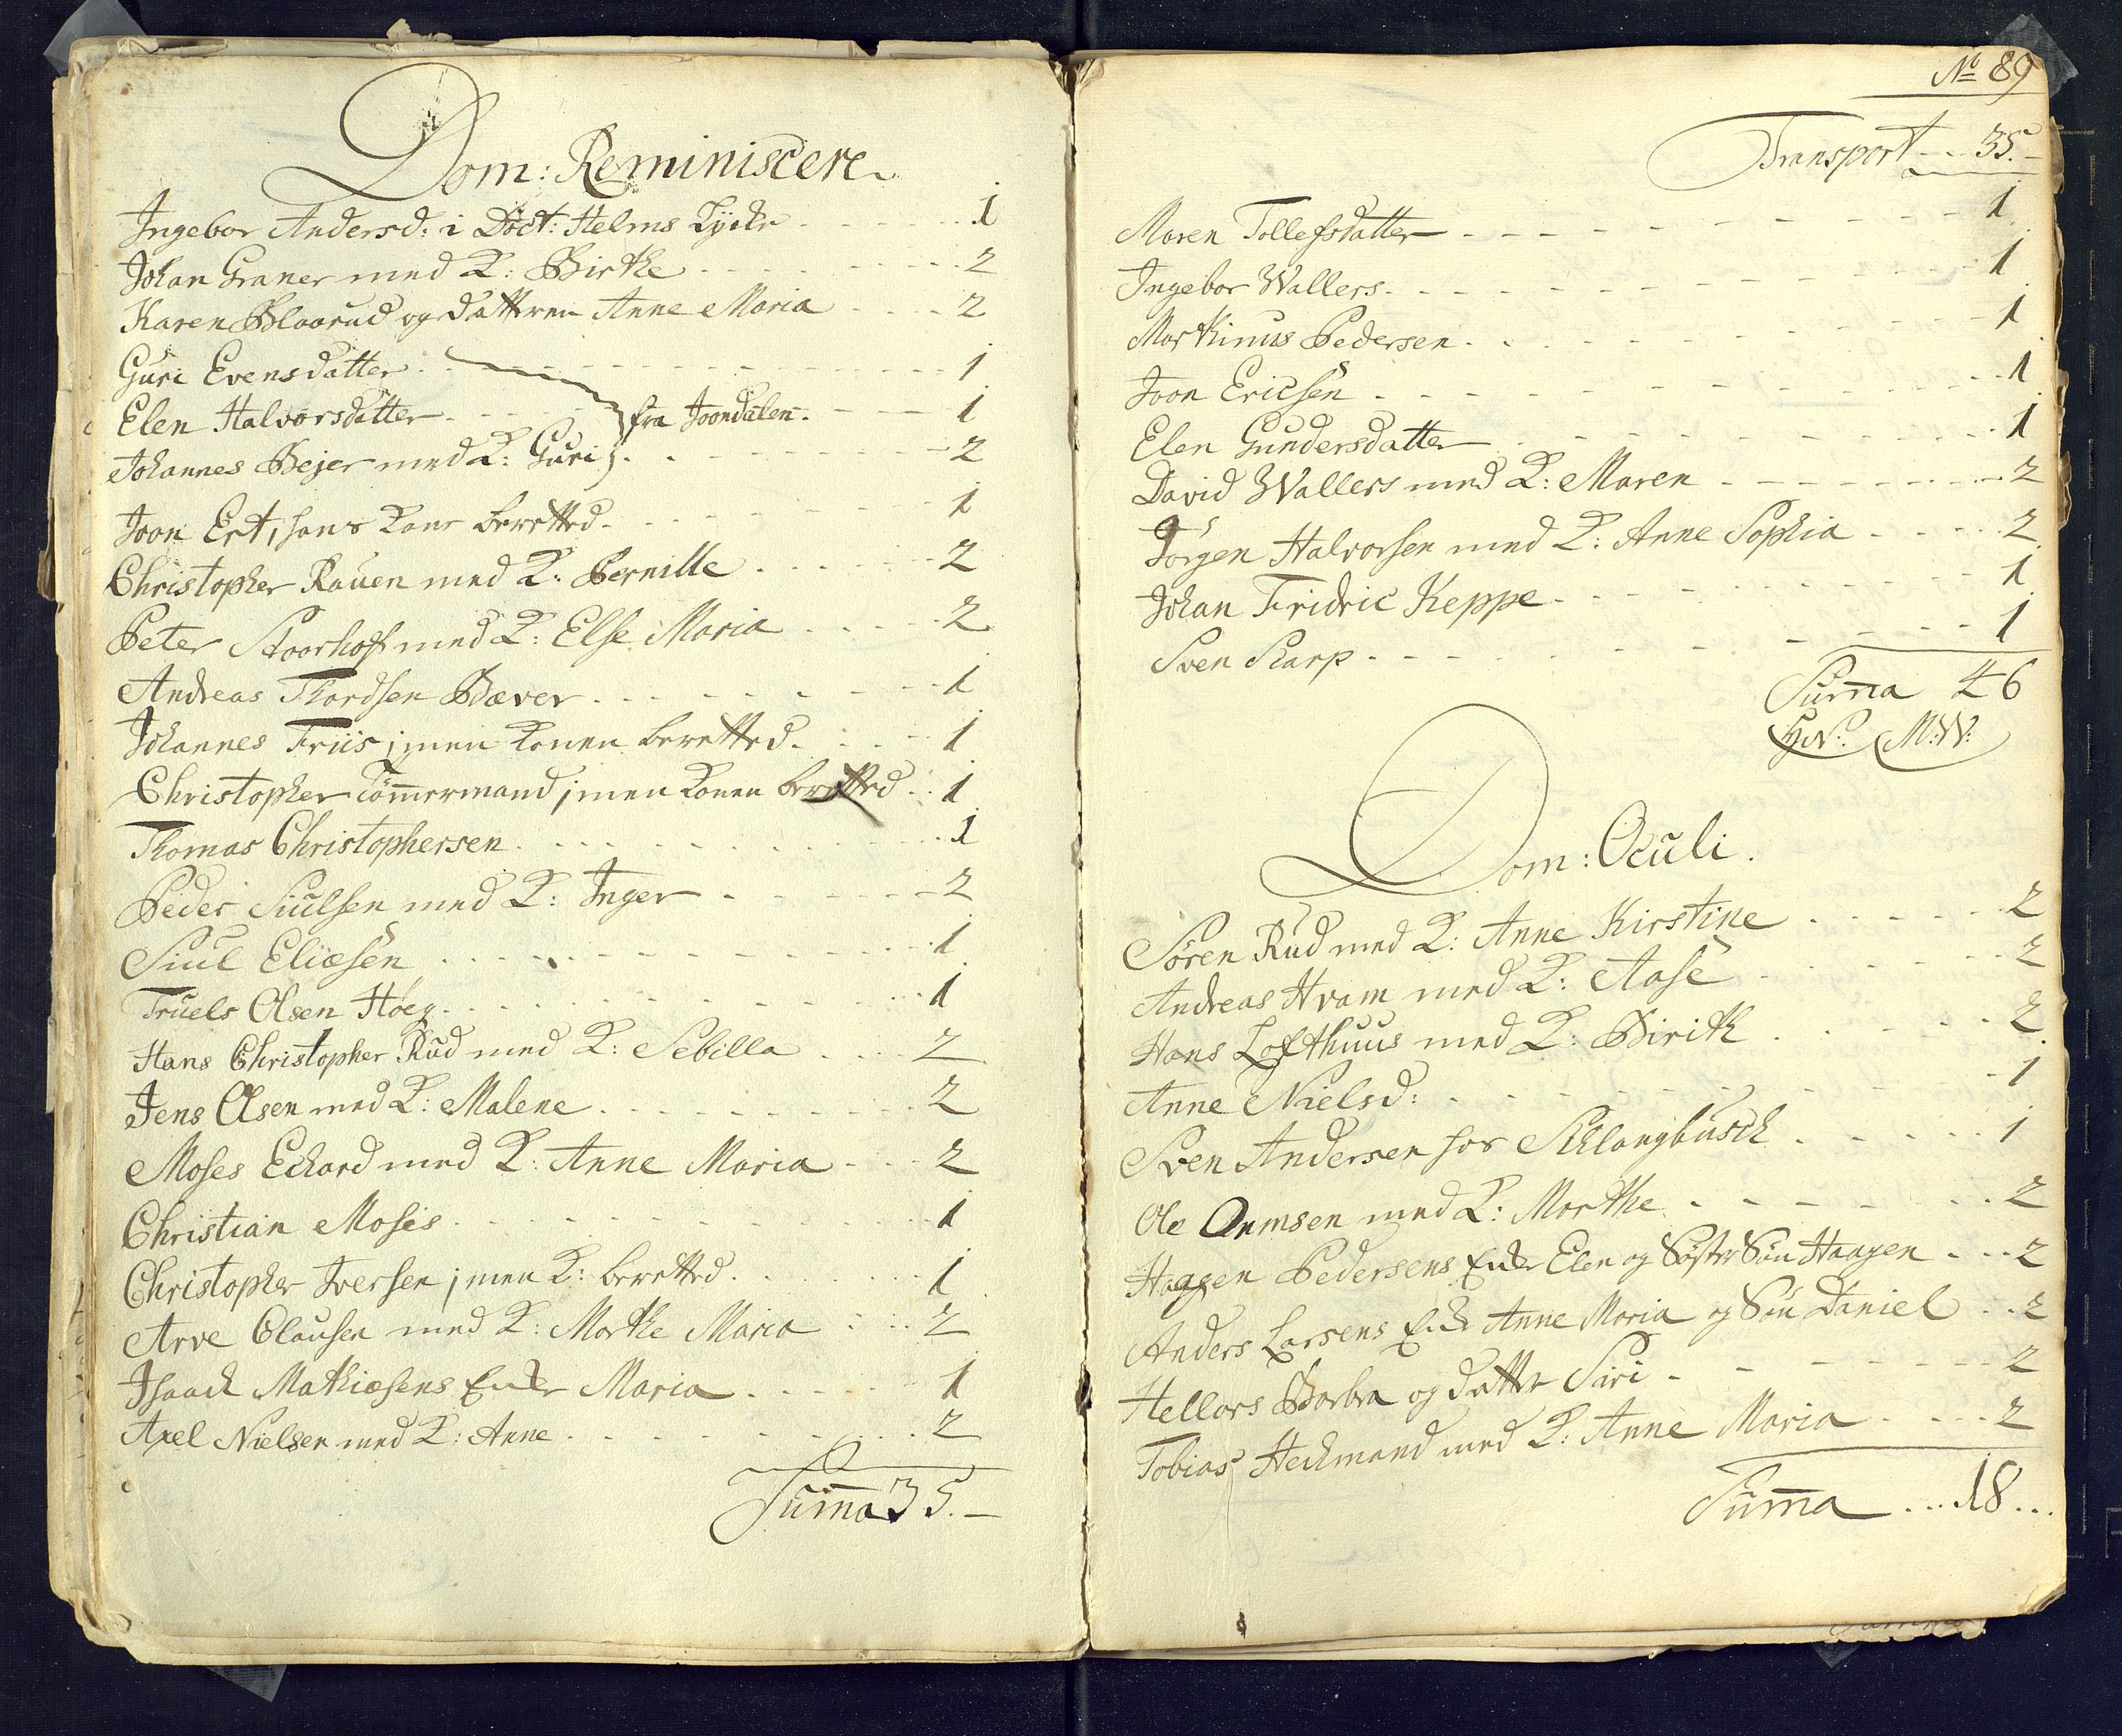 Dom: Reminiscere
Ingebor Andersd: i Doct: Helms Lycke - - - - 1
Johan Graner med K: Birthe - - - - 2
Karen Blaarud og datteren Anne Maria - - - - 2
Guri Evensdatter - - - - 1
Elen Halvorsdatter - - - - fra Joondalen - - - - 1
Johannes Bejer med K: Guri - - - - 2
Joon Ert, hans Kone beretted - - - - 1
Christopher Rauen med K: Pernille - - - - 2
Peter Stoorhof med K: Else Maria - - - - 2
Andreas Thordsen Bæver - - - - 1
Johannes Friis; men Konen beretted - - - - 1
Christopher Tömmermand; men Konen beretted - - 1
Thomas Christophersen - - - - 1
Peder Siulsen med K: Inger - - - - 2
Siul Eliæsen - - - - 1
Truels Olsen Høeg - - - - 1
Hans Christopher Rud med K: Sebilla - - - - 2
Jens Olsen med K: Malene - - - - 2
Moses Echard med K: Anne Maria - - - 2
Christian Moses - - - - 1
Christopher Iversen; men K: beretted - - - - 1
Arve Clausen med K: Marthe Maria - - - - 2
Isaach Mathiæsens Enke Maria - - - - 1
Axel Nielsen med K: Anne - - - - 2
Sum̄a 35. -
No 89
Transport - - 35. -
Maren Tollefsdatter - - - - 1
Ingebor Wallers - - - - 1
Marthinus Pedersen - - - - 1
Joon Ericsen - - - - 1
Elen Gundersdatter - - - - 1
David Wallers med K: Maren - - - - 2
Jörgen Halvorsen med K: Anne Sophia - - - - 2
Johan Fridric Keppe - - - - 1
Sven Skarp - - - - 1
Sum̄a 46
M:W:
Dom: Oculi.
Sören Rud med K: Anne Kirstine - - - - 2
Andreas Hvam med K: Aase - - - - 2
Hans Lofthuus med K: Birith - - - - 2
Anne Nielsd: - - - - 1
Sven Andersen hos Schlangbusch - - - - 1
Ole Onmsen med K: Marthe - - - - 2
Haagen Pedersens Enke Elen og Søster Sön Haagen - - - 2
Anders Larsens Enke Anne Maria og Sön Daniel - - 2
Hellars Barbra og datter Siri - - - - 2
Tobias Heckmand med K: Anne Maria - - - - 2
Sum̄a ... 18 ...